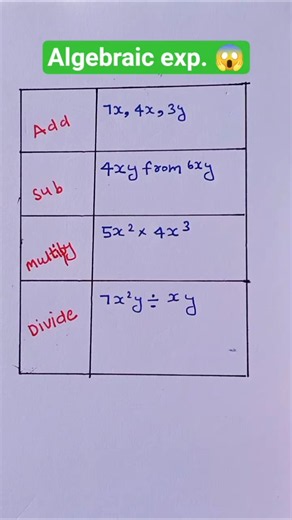 Algebraic exp. 😱
Add 7x, 4x, 3y
Sub 4xy from 6xy
multiply 5x² × 4x³
Divide 7x²y ÷ xy